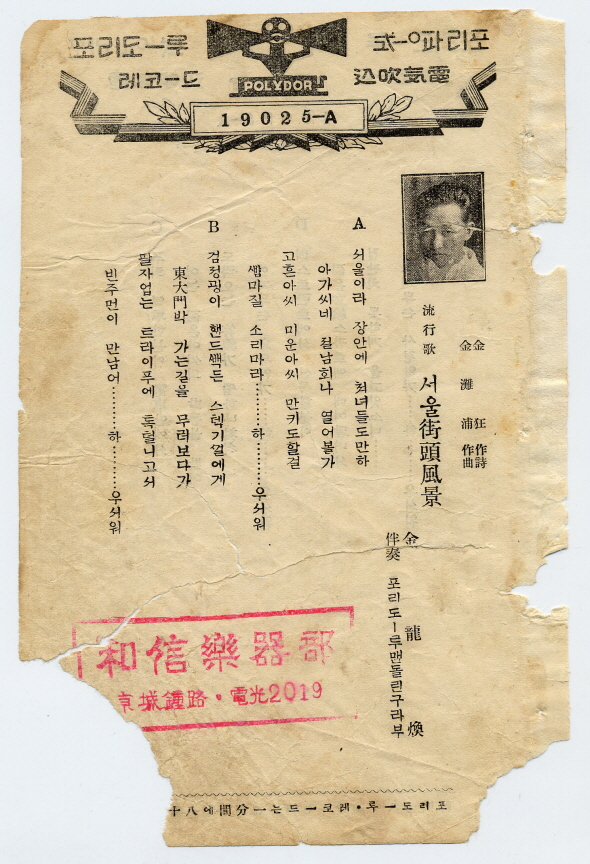 포리도ー루
레코ー드
電氣吹込
POLYDOR
19025-A
金狂 作詩
金灘浦 作曲
流行歌 서울街頭風景
金龍煥
伴奏 포리도ー루맨돌린구라부
A 서울이라 장안에 처녀들도만하
아가씨네 전남회나 열어볼가
고흔아씨 미운아씨 만키도할걸
쌤마질 소리마라………하………우서워
B 검정광이 핸드쌕든 스텍기껄에게
東大門박 가는길을 무러보다가
팔자업는 트라이푸에 톡털니고서
빈주먼이 만남어………하………우서워
和信樂器部
京城鍾路・電光2019
포리도ー루・레코ー드는一分間에八十